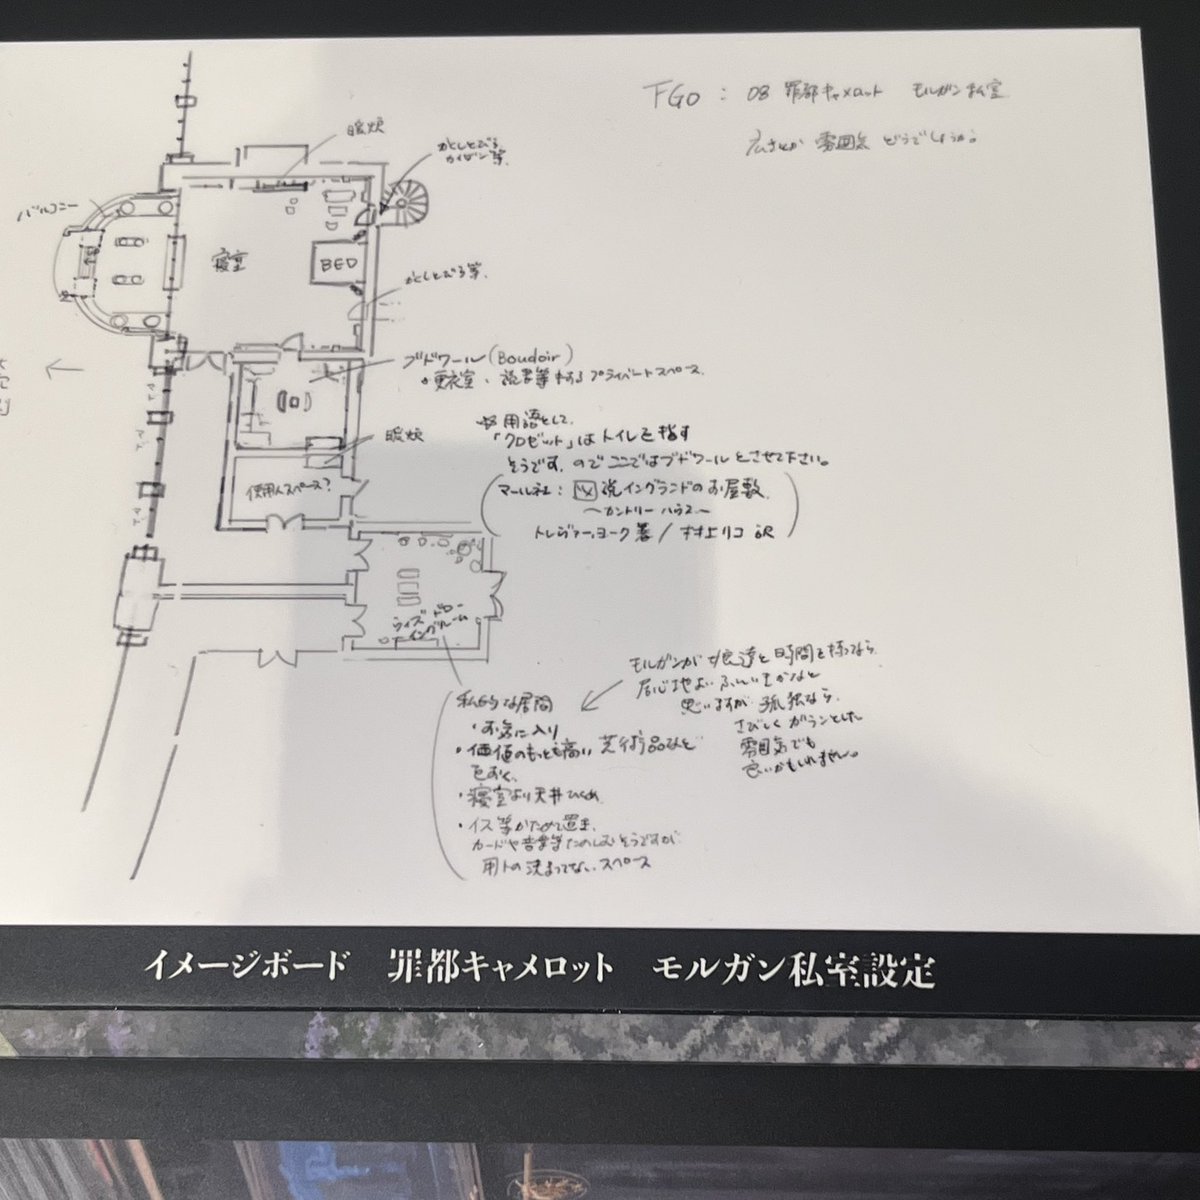 FGO : 08 罪都キャメロット モルガン私室
広さとか 雰囲気 どうでしょうか。
暖炉
かくしとびら
カイダン等.
バルコニー
寝室
BED
かくしとびら等.
ブドワール(Boudoir)
・更衣室、読書等するプライベートスペース.
※用語として、
「クロゼット」はトイレを指す
そうです。のでここではブドワールとさせて下さい。
(マール社: 図説イングランドのお屋敷
〜カントリーハウス〜
トレヴァー・ヨーク著/村上リコ訳)
暖炉
使用人スペース?
ウィズドロー
イングルーム
モルガンが娘達と時間を持つなら
居心地よいふんいきかなと
思いますが 孤独なら、
さびしくガランとした
雰囲気でも
良いかもしれません。
私的な居間
・お気に入り
・価値のもっとも高い芸術品など
をおく、
・寝室より天井ひくめ
・イス等かためて置き、
カードや音楽等たのしむそうですが
用トの決まってないスペース
イメージボード 罪都キャメロット モルガン私室設定